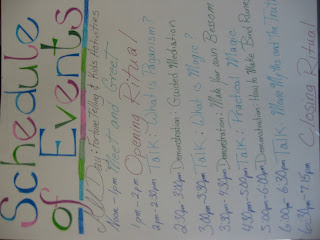 Schedule
of Events
All Day: Fortune Telling & Kids Activities
Noon - 1pm Meet and Greet
1pm - 2pm Opening Ritual
2pm - 2:30pm Talk: What is Paganism?
2:30 - 3:00pm Demonstration: Guided Meditation
3:00pm - 3:30pm Talk: What is Magic?
3:30pm - 4:30pm Demonstration: Make Your own Besom
4:30pm - 5:00pm Talk: Practical Magic
5:00pm - 6:00pm Demonstration: How to Make Bind Runes
6:00pm - 6:30pm Talk: Movie Myths and the Truth
6:30pm - 7:15pm Closing Ritual